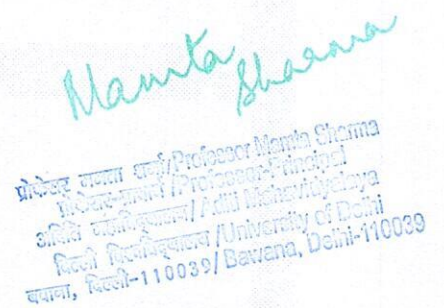 Mamta Sharma
प्रोफेसर ममता शर्मा/Professor Mamta Sharma
प्रोफेसर-प्राचार्य/Professor-Principal
अदिति महाविद्यालय/Aditi Mahavidyalaya
दिल्ली विश्वविद्यालय/University of Delhi
बवाना, दिल्ली-110039/Bawana, Delhi-110039